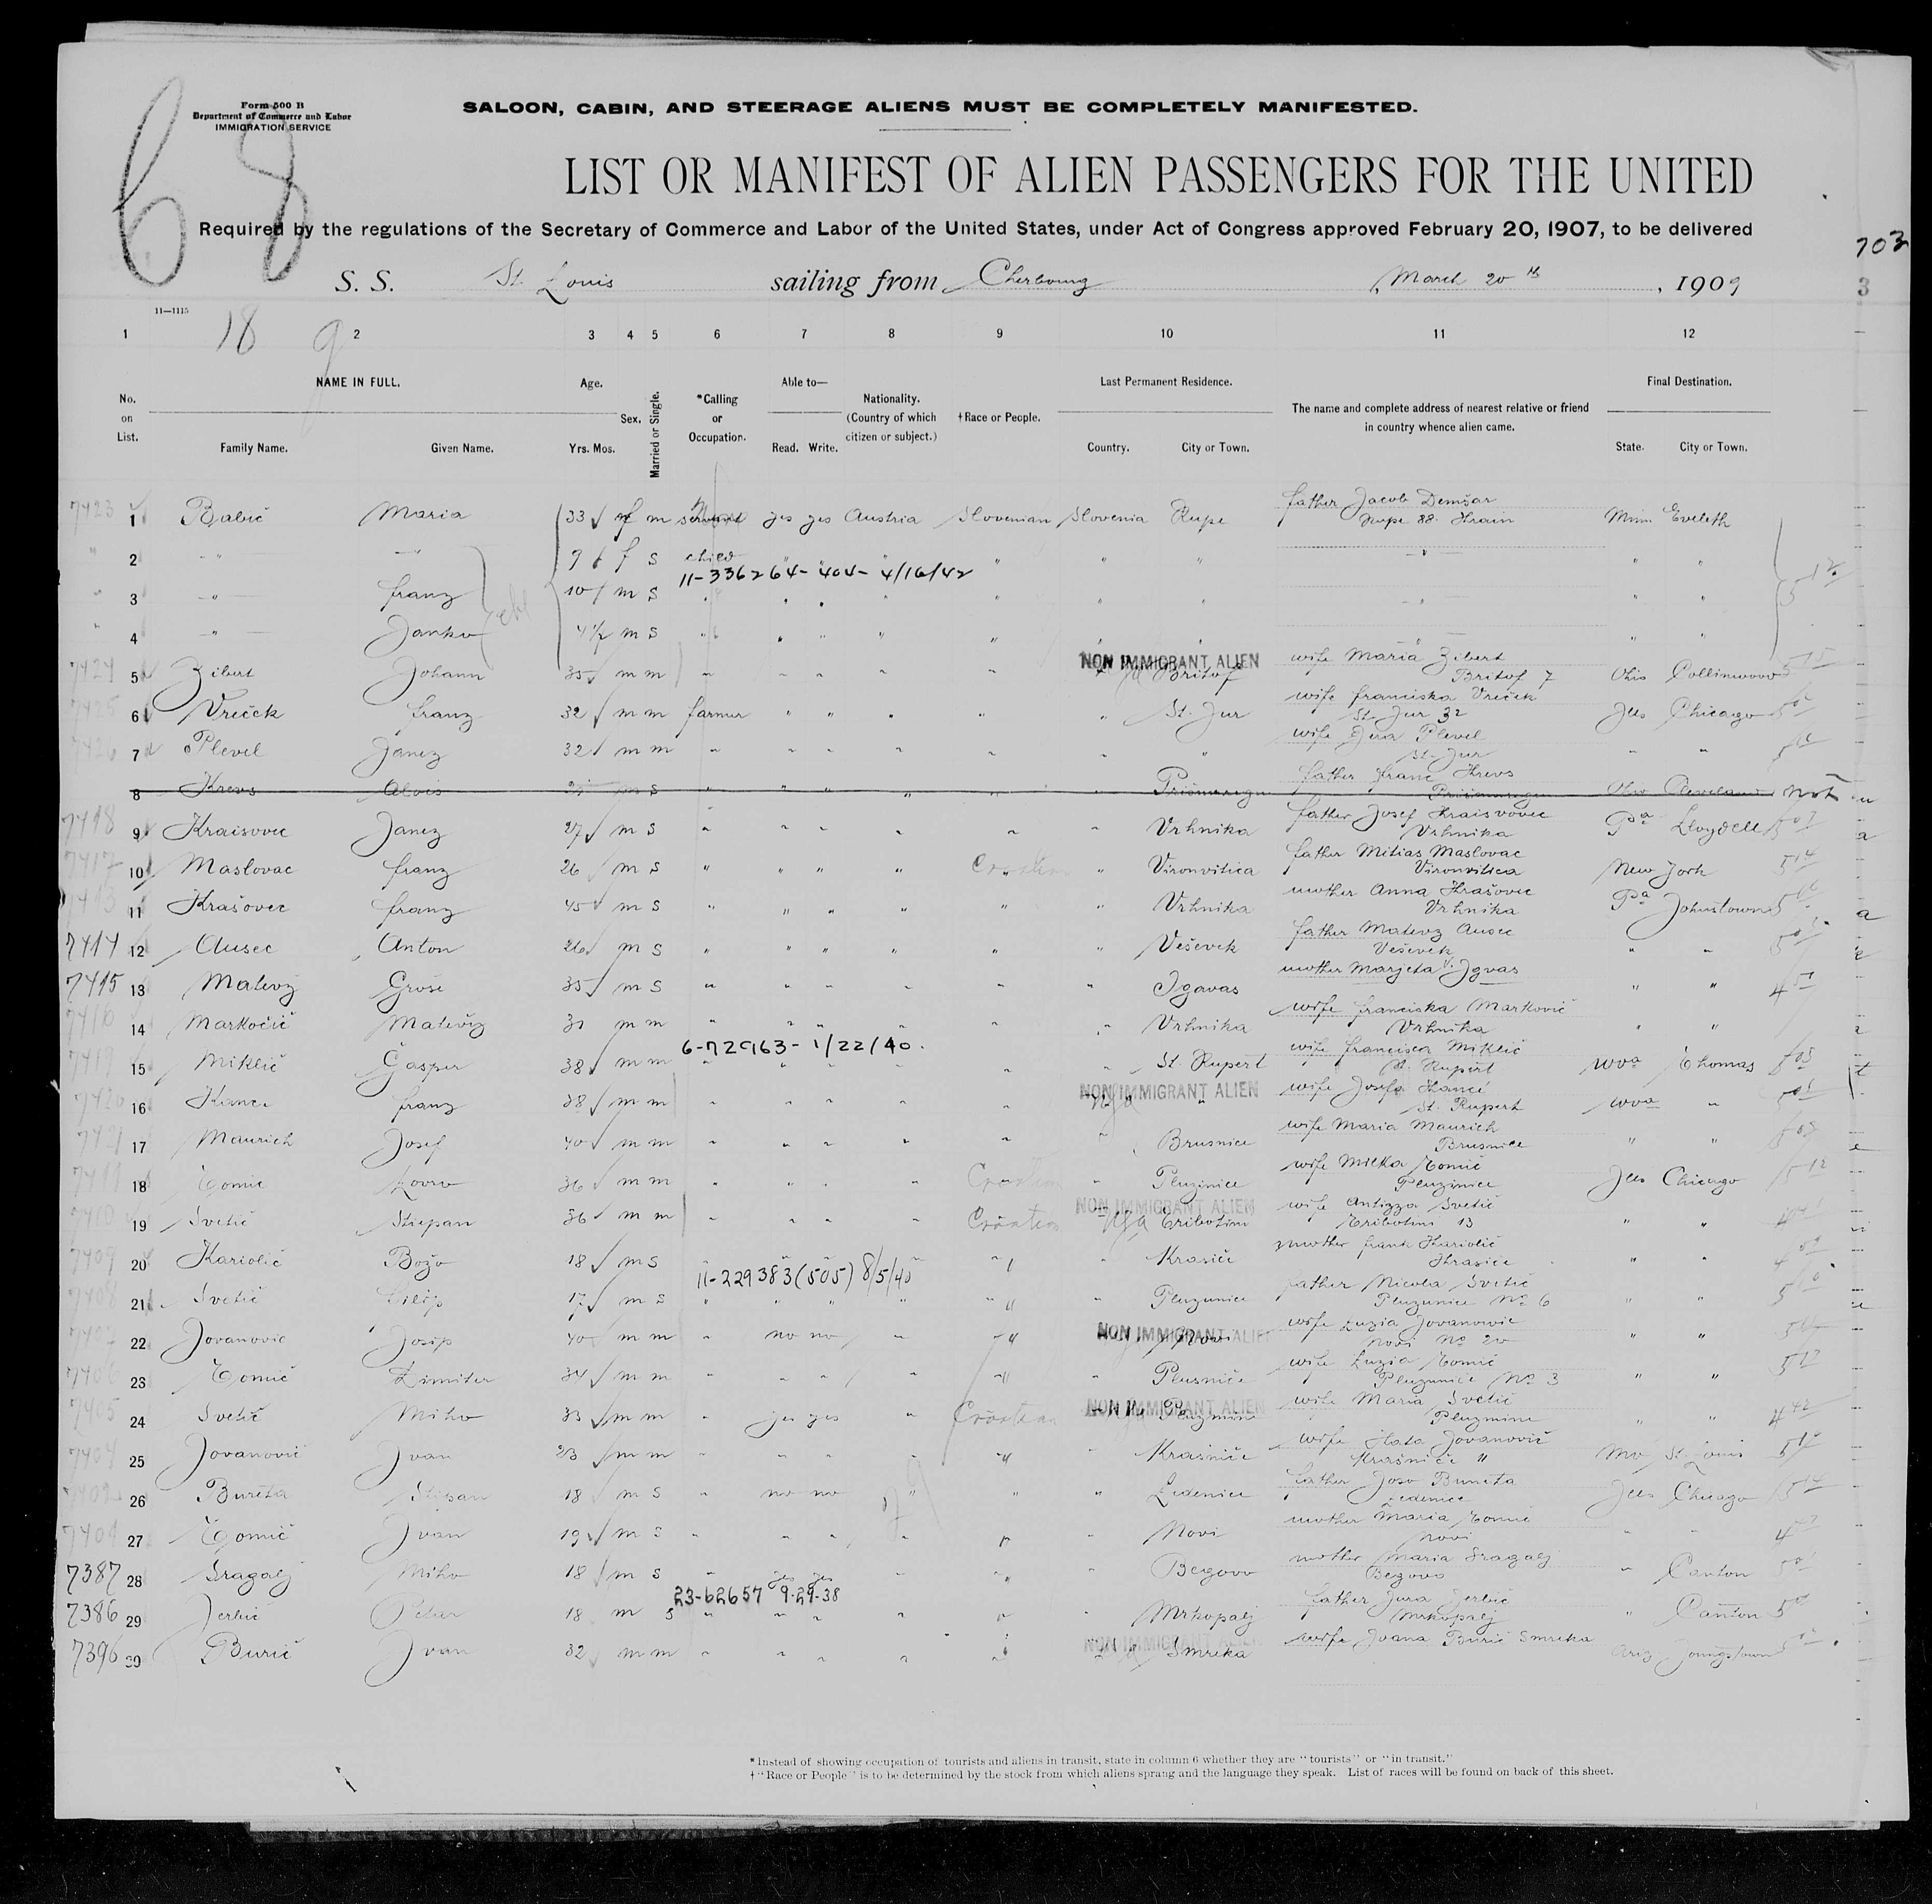 Form 500 B
Department of Commerce and Labor
IMMIGRATION SERVICE
68
SALOON, CABIN, AND STEERAGE ALIENS MUST BE COMPLETELY MANIFESTED.
LIST OR MANIFEST OF ALIEN PASSENGERS FOR THE UNITED
Required by the regulations of the Secretary of Commerce and Labor of the United States, under Act of Congress approved February 20, 1907, to be delivered
703
S. S. St. Louis sailing from Cherbourg, March 20th, 1909
3
11—1115
18 9
1 2 3 4 5 6 7 8 9 10 11 12
No. on List. NAME IN FULL. Family Name. Given Name. Age. Yrs. Mos. Sex. Married or Single. *Calling or Occupation. Able to— Read. Write. Nationality. (Country of which citizen or subject.) †Race or People. Last Permanent Residence. Country. City or Town. The name and complete address of nearest relative or friend in country whence alien came. Final Destination. State. City or Town.
7423 1 Babič Maria 33 f m servant yes yes Austria Slovenian Slovenia Rupe father Jacob Demšar Rupe 88. Krain Minn Eveleth
2 " " 9 f s child " " " " " " " " "
11-336264-404-4/16/42
3 " franz 10 m s " " " " " " " " " "
4 " Janko 4 1/2 m s " " " " " " " "
NON IMMIGRANT ALIEN
7424 5 Zibert Johann 35 m m " " " " Britof wife Maria Zibert Britof 7 Ohio Collinwood
7425 6 Vreček franz 32 m m farmer " " " " " St. Jur wife franciska Vreček St. Jur 32 Ills Chicago
7426 7 Plevel Janez 32 m m " " " " " " " wife Jera Plevel St. Jur " "
8 Krevs Alois m s " " " " " " father franc Krevs Ohio Cleveland not
7418 9 Kraisovec Janez 27 m s " " " " " " Vrhnika father Josef Kraisvovec Vrhnika Pa Lloydell
7417 10 Maslovac franz 26 m s " " " " Croatian " Vironvitica father Mitias Maslovac Vironvitica New York
7413 11 Krašovec franz 45 m s " " " " " " Vrhnika mother Anna Krašovec Vrhnika Pa Johnstown
7414 12 Ausec Anton 26 m s " " " " " " Veševek father Matevz Ausec Veševek " "
7415 13 Matevz Grose 35 m s " " " " " " Igavas mother Marjeta V. Igvas " "
7416 14 Markočič Matevz 31 m m " " " " " " Vrhnika wife franciska Markovič Vrhnika " "
6-72963-1/22/40.
7419 15 Miklič Gasper 38 m m " " " " " " St. Rupert wife francisca Miklič St. Rupert wva Thomas
NON IMMIGRANT ALIEN
7420 16 franz 38 m m " " " " " " wife Josefa St. Rupert wva "
7421 17 Maurich Josef 40 m m " " " " " " Brusnice wife Maria Maurich Brusnice " "
7411 18 Tomic Lovro 36 m m " " " " Croatian " Pluzinice wife Milka Tomič Pluzinice Ills Chicago
NON IMMIGRANT ALIEN
7410 19 Svetič Stiepan 36 m m " " " " Croatian Tribotini wife Antizza Svetič 13 " "
7409 20 Kariolič Božo 18 m s " " " " " Krasiče mother frank Kariolič Krasice " "
11-229383(505) 8/5/40
7408 21 Svetič filip 17 m s " " " " " " Pluzunice father Nicola Svetič Pluzunice No 6 " "
NON IMMIGRANT ALIEN
7407 22 Jovanovic Josip 40 m m " no no " " Novi wife Luzia Jovanowic Novi No 20 " "
7406 23 Tomič Dimiter 34 m m " " " " " " Plusniče wife Luzia Tomič Pluzunice No 3 " "
NON IMMIGRANT ALIEN
7405 24 Svetič Miho 33 m m " yes yes " Croatian Pluzmine wife Maria Svetič Pluzmine " "
7404 25 Jovanovič Ivan 23 m m " " " " " " Krasniče wife Kata Jovanovič Krasniče " Mo St. Louis
7402 26 Bureta Stipan 18 m s " no no " " " Ledenice father Joso Buneta Ledenice Ills Chicago
7401 27 Tomič Ivan 19 m s " " " " " " Novi mother Maria Tomic Novi " "
7387 28 Dragalj Miho 18 m s " yes yes " " " Begovo mother Maria Dragalj Begovo " Canton
23-62657 9-29-38
7386 29 Jerbič Petar 18 m s " " " " " " Mrkopalj father Jura Jerbič Mrkopalj " Canton
NON IMMIGRANT ALIEN
7396 30 Burič Ivan 32 m m " " " " " Smreka wife Ivana Burič Smreka Youngstown
*Instead of showing occupation of tourists and aliens in transit, state in column 6 whether they are "tourists" or "in transit."
†"Race or People" is to be determined by the stock from which aliens sprang and the language they speak. List of races will be found on back of this sheet.